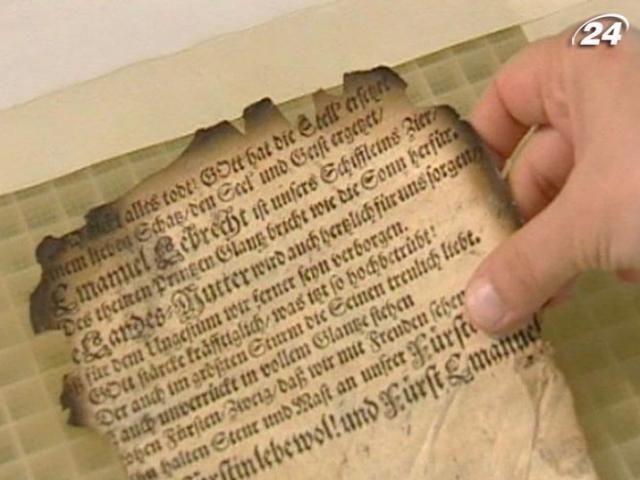 24
alles todt! GOtt hat die Stell' ersetzet
lieben Schatz/den Seel' und Geist ergetzet/
Emanuel Lebrecht ist unsers Schiffleins Zier/
Des theuren Printzen Glantz bricht wie die Sonn herfür.
Landes-Mutter wird auch hertzlich für uns sorgen/
für dem Ungestüm wir ferner seyn verborgen.
GOtt stärcke kräfftiglich/ was itzt so hochbetrübt!
Der auch im größten Sturm die Seinen treulich liebt.
auch unverrückt in vollem Glantze stehen
hohen Fürsten-Zweig/ daß wir mit Freuden sehen
halten Steur und Mast an unser Fürst
Fürstin lebe wol! und Fürst Emanuel